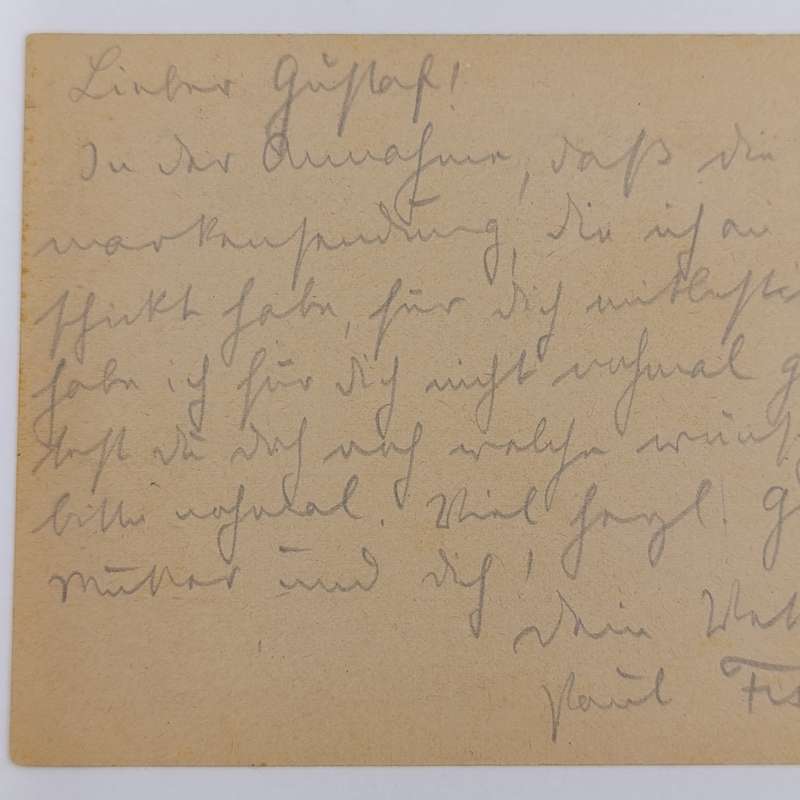 Lieber Gustaf!
In der Annahme, daß die
markensendung, die ich an
schickt habe, für dich mitbesti
habe ich für dich nicht nochmal g
test du doch noch welche wünsch
bitte nochmal. Viel herzl. G
Mutter und dich!
Dein Vet
Paul Fis